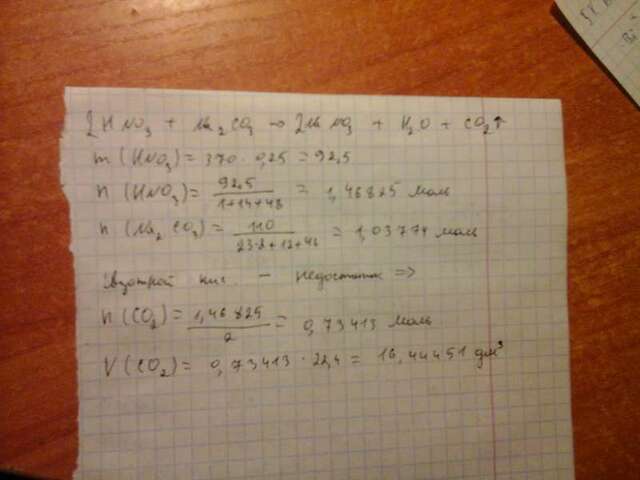 2HNO₃ + Na₂CO₃ → 2NaNO₃ + H₂O + CO₂↑
m(HNO₃) = 370 · 0,25 = 92,5
n(HNO₃) = 92,5 / 1+14+48 = 1,46825 моль
n(Na₂CO₃) = 110 / 23·2+12+48 = 1,03774 моль
азотной кис. - недостаток =>
n(CO₂) = 1,46825 / 2 = 0,73413 моль
V(CO₂) = 0,73413 · 22,4 = 16,44451 дм³